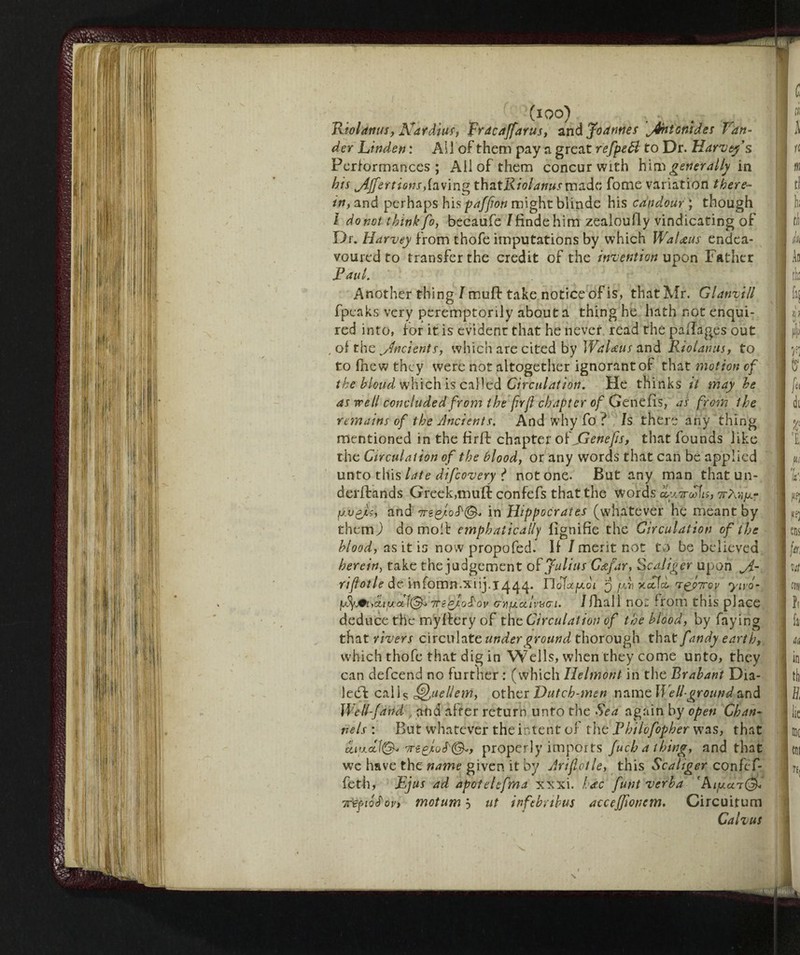 (100)
Riolanus, Nardius, Fracassarus, and Joannes Antonides Van-
der Linden: All of them pay a great respect to Dr. Harvey's
Performances; All of them concur with him generally in
his Assertions, saving that Riolanus made some variation there-
in, and perhaps his passion might blinde his candour; though
I do not think so, because I finde him zealously vindicating of
Dr. Harvey from those imputations by which Walæus endea-
voured to transfer the credit of the invention upon Father
Paul.
Another thing I must take notice of is, that Mr. Glanvill
speaks very peremptorily about a thing he hath not enqui-
red into, for it is evident that he never read the passages out
of the Ancients, which are cited by Walæus and Riolanus, to
to shew they were not altogether ignorant of that motion of
the bloud which is called Circulation. He thinks it may be
as well concluded from the first chapter of Genesis, as from the
remains of the Ancients. And why so? Is there any thing
mentioned in the first chapter of Genesis, that sounds like
the Circulation of the blood, or any words that can be applied
unto this late discovery? not one. But any man that un-
derstands Greek, must confess that the words
and περίοδ@. in Hippocrates (whatever he meant by
them) do most emphatically signifie the Circulation of the
blood, as it is now proposed. If I merit not to be believed
herein, take the judgement of Julius Cæsar, Scaliger upon A-
ristotle de insomn. xiij. 1444. Ποταμοὶ ȣ̀ μὴ κατὰ τρόπον γινό-
περίοδον σημαίνουσι. I shall not from this place
deduce the mystery of the Circulation of the blood, by saying
that rivers circulate under ground thorough that sandy earth,
which those that dig in Wells, when they come unto, they
can defcend no further: (which Helmont in the Brabant Dia-
lect calls Quellem, other Dutch-men name Well-ground and
Well-sand, and after return unto the Sea again by open Chan-
nels: But whatever the intent of the Philosopher was, that
αἵματ@. περίοδ@., properly imports such a thing, and that
we have the name given it by Aristotle, this Scaliger confes-
seth, Ejus ad apotelesma xxxi. hæc sunt verba Αἵματ@.
περίοδον, motum; ut infebribus accessionem. Circuitum
Calvus